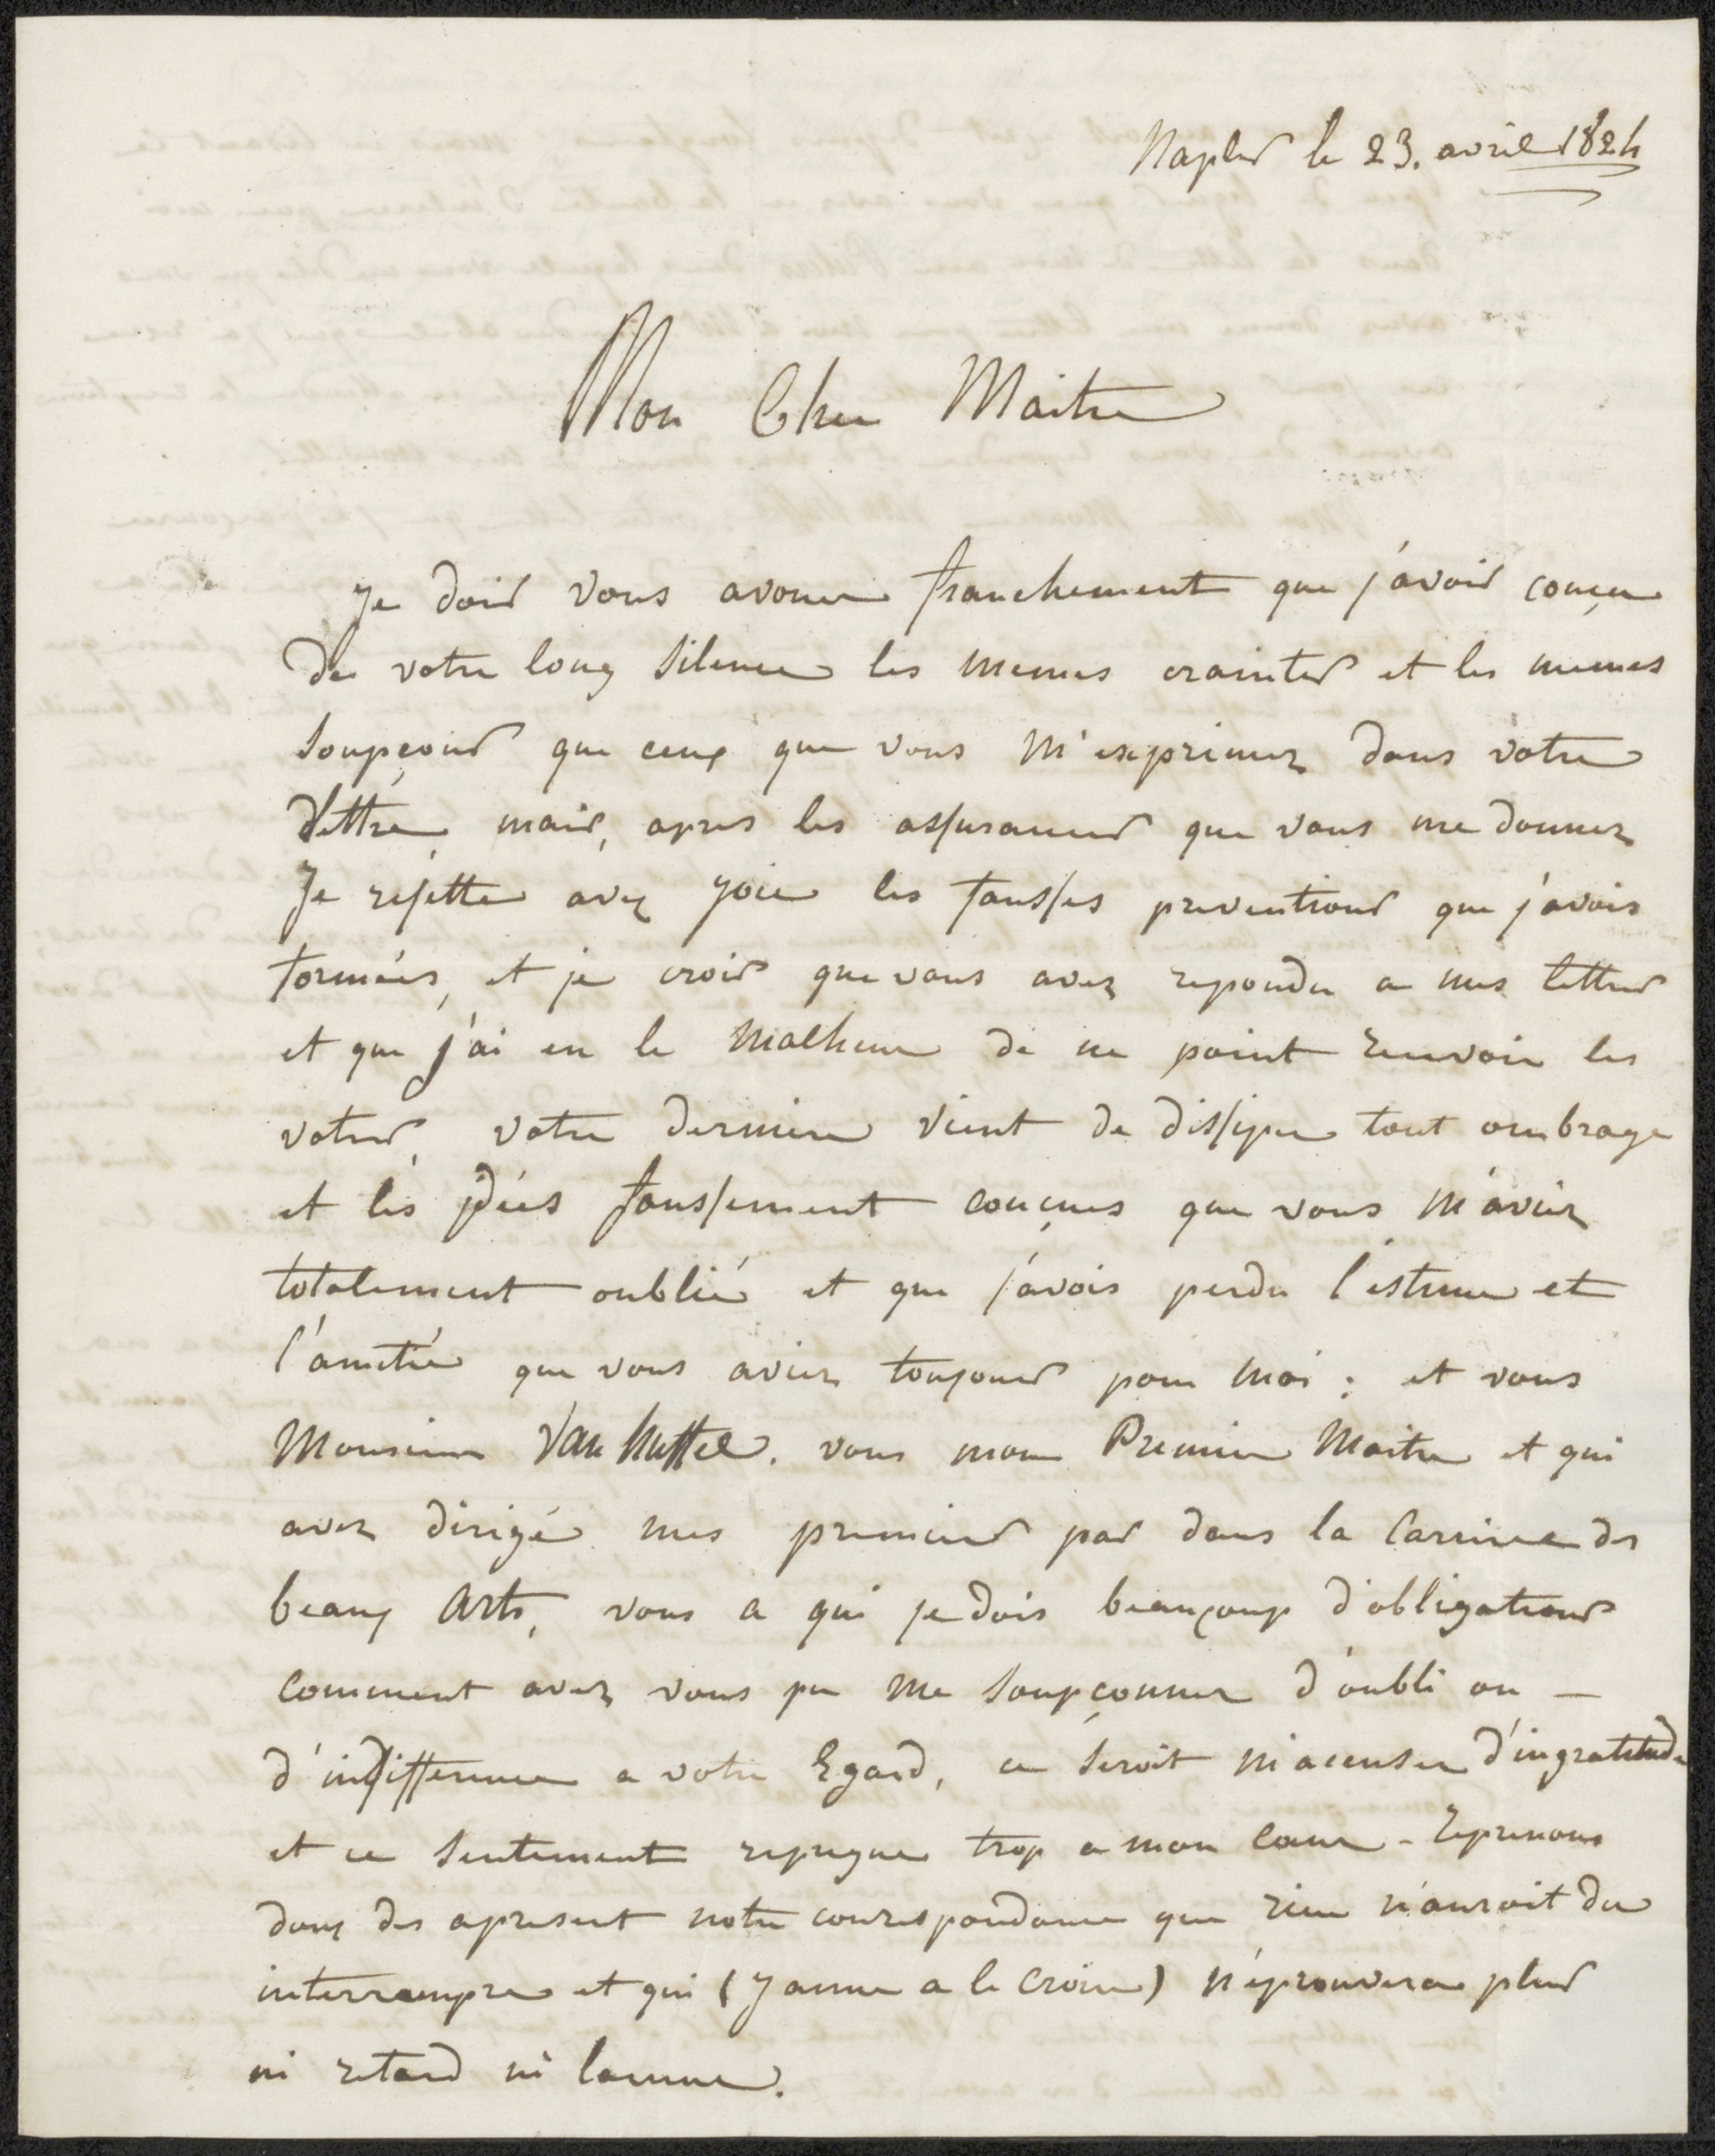 Naples le 23. avril 1824
Mon Cher Maitre
Je dois vous avouer franchement que j'avois conçu
de votre long silence les memes craintes et les memes
soupçons que ceux que vous m'exprimez dans votre
lettre, mais, apres les assurances que vous me donnez
Je rejette avec joie les fausses preventions que j'avois
formées, et je crois que vous avez repondu a mes lettres
et que j'ai eu le malheur de ne point recevoir les
votres, votre derniere vient de dissiper tout ombrage
et les idées faussement conçues que vous m'aviez
totalement oublié et que j'avois perdu l'estime et
l'amitié que vous aviez toujours pour moi ; et vous
Monsieur Van huffel. vous mon Premier Maitre et qui
avez dirigé mes premiers pas dans la Carriere des
beaux Arts, vous a qui je dois beaucoup d'obligations
comment avez vous pu me soupçonner d'oubli ou —
d'indifference a votre Egard, ce seroit m'acuser d'ingratitude
et ce sentiment repugne trop a mon coeur - Reprenons
donc des apresent notre courespondance que rien n'auroit du
interrompre et qui (J'aime a le croire) n'éprouvera plus
ni retard ni lacune.